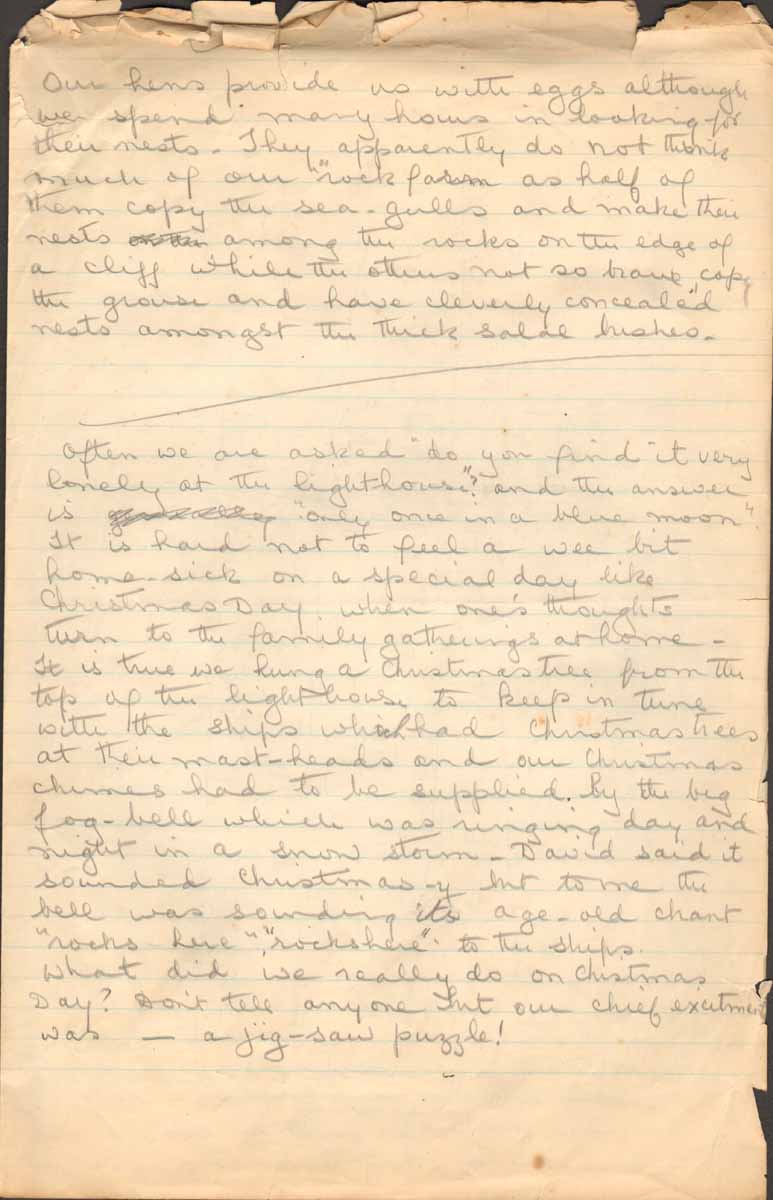 Our hens provide us with eggs although
we spend many hours in looking for
their nests - They apparently do not think
much of our "rock farm as half of
them copy the sea-gulls and make their
nests on the among the rocks on the edge of
a cliff while the others not so brave "copy
the grouse and have cleverly concealed
nests amongst the thick salal bushes.
Often we are asked "do you find it very
lonely at the lighthouse"? and the answer
is "only once in a blue moon".
It is hard not to feel a wee bit
home-sick on a special day like
Christmas Day when one's thoughts
turn to the family gatherings at home -
It is true we hung a Christmas tree from the
top of the lighthouse to keep in tune
with the ships which had Christmas trees
at their mast-heads and our Christmas
chimes had to be supplied by the big
fog-bell which was ringing day and
night in a snow storm - David said it
sounded Christmas-y but to me the
bell was sounding its age-old chant
"rocks here", "rocks here" to the ships.
What did we really do on Christmas
Day? Don't tell anyone but our chief excitment
was — a jig-saw puzzle!